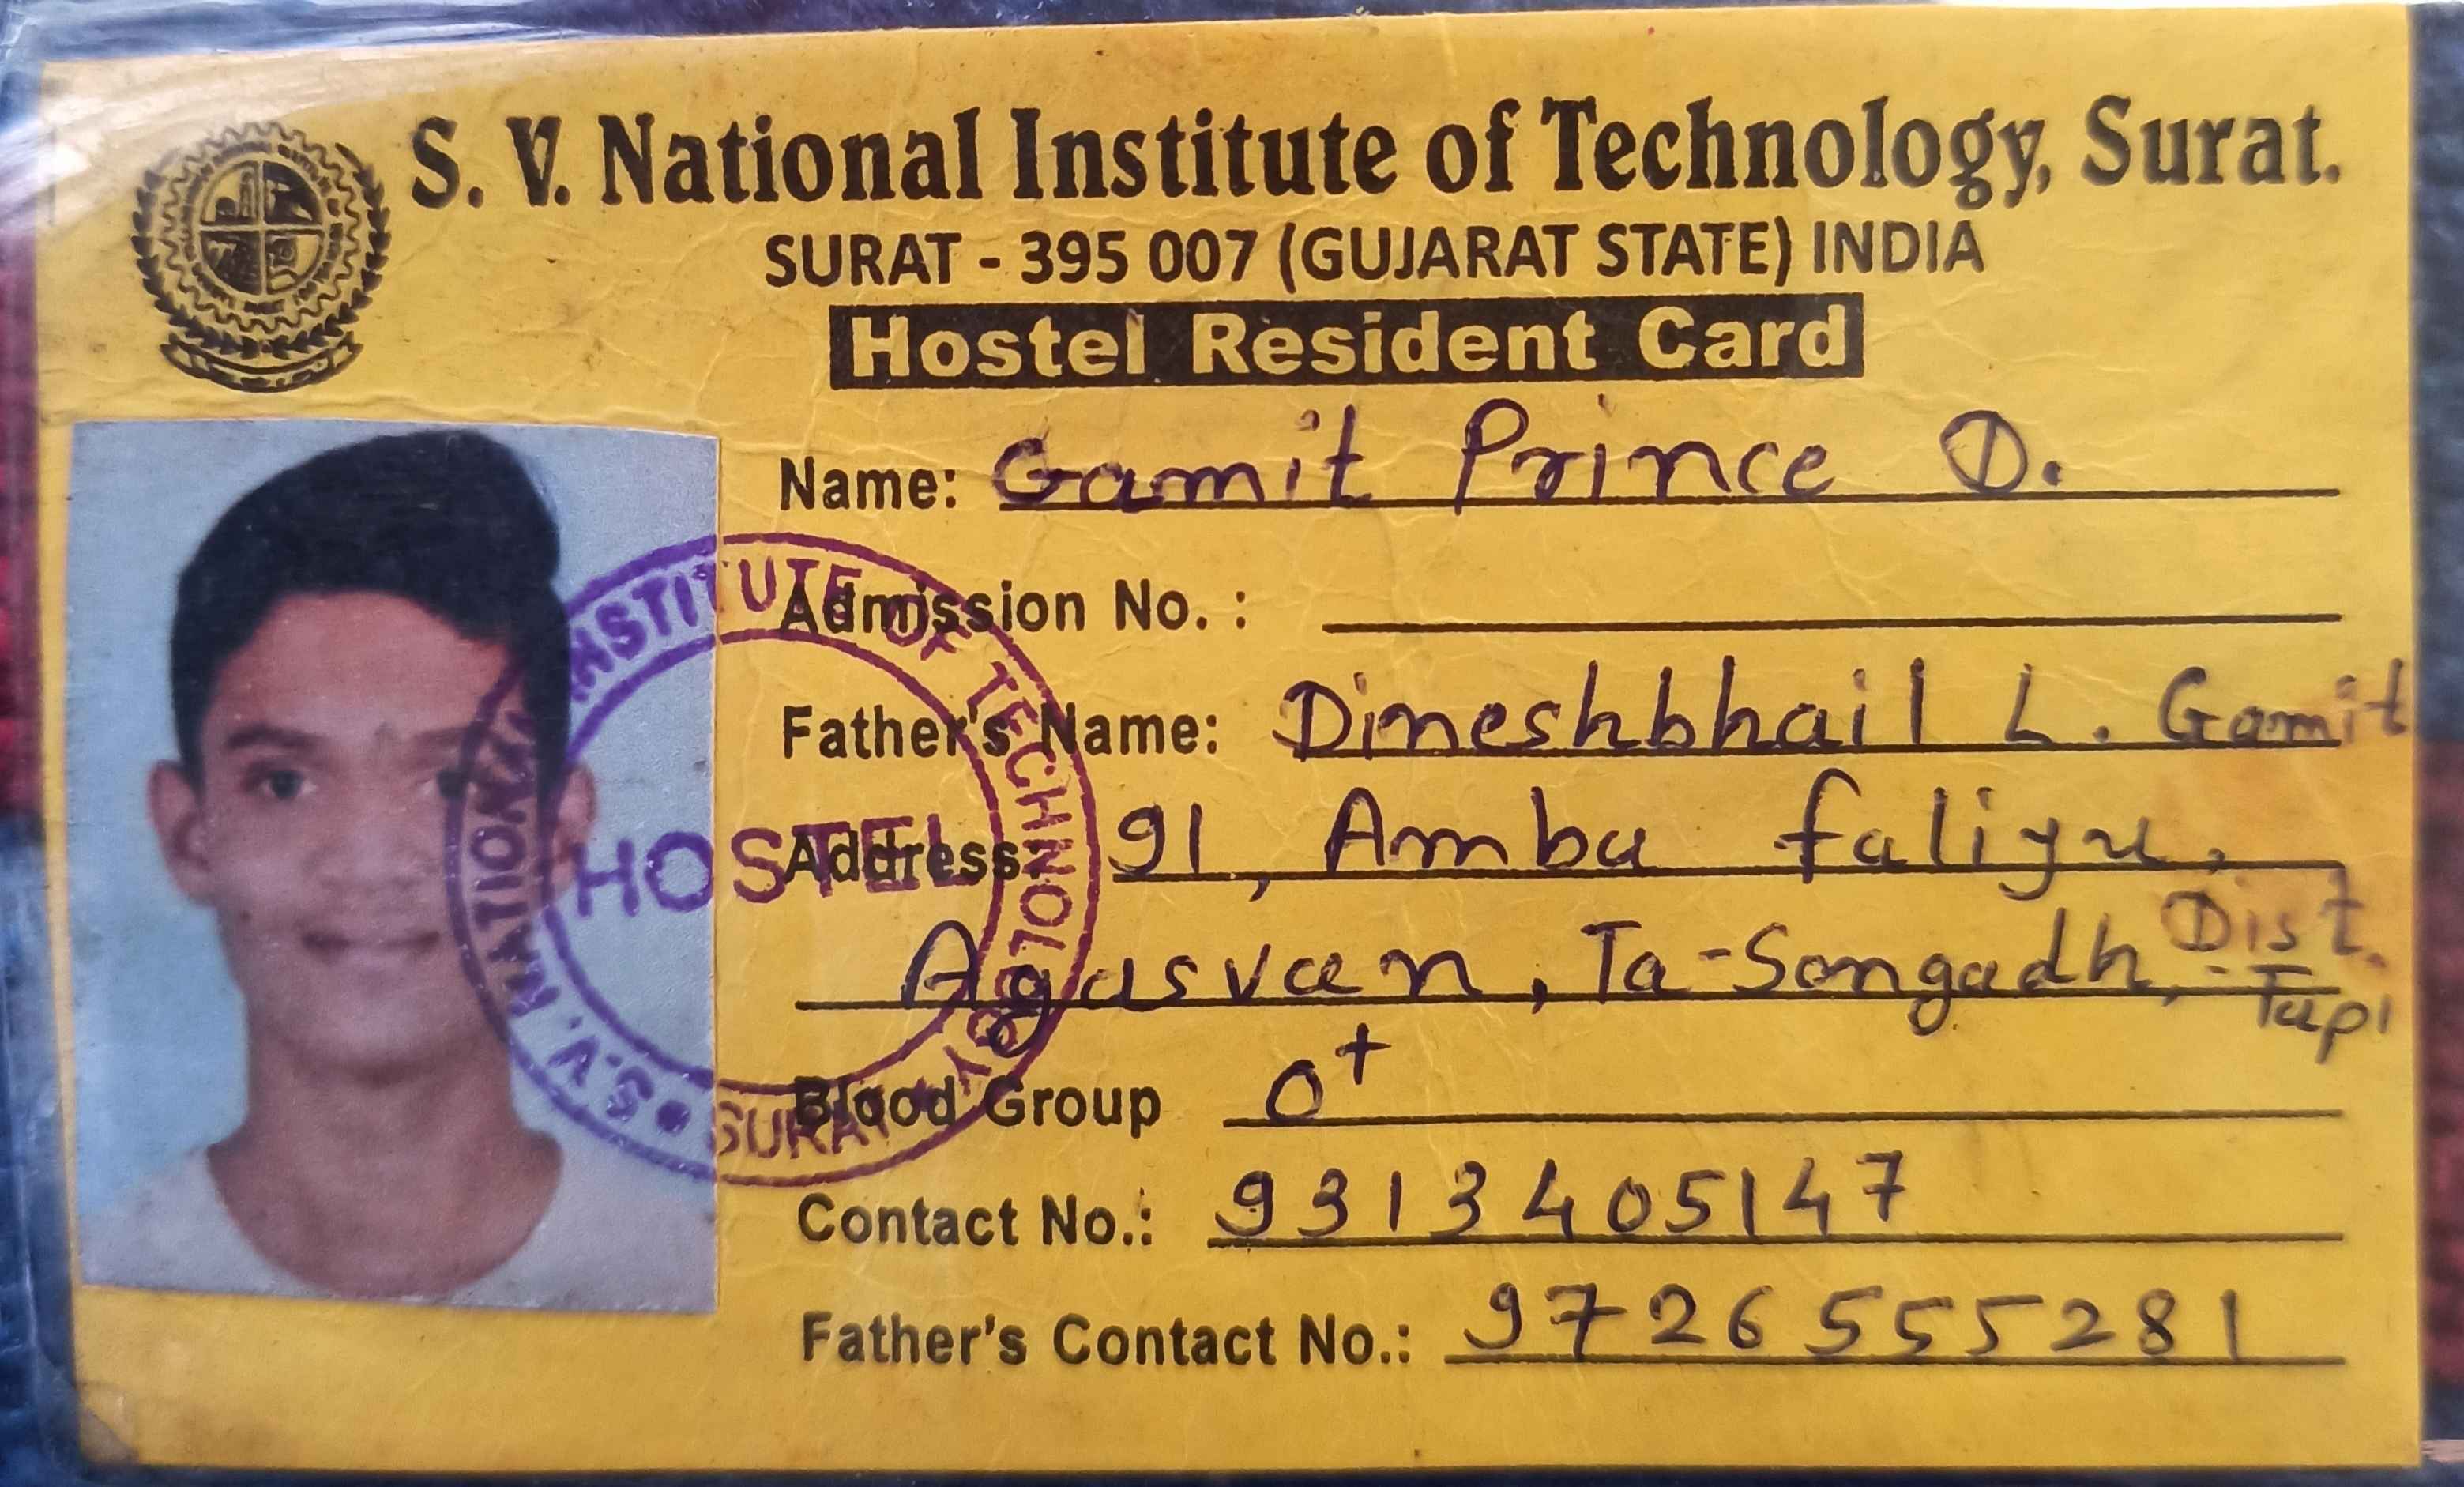 S. V. National Institute of Technology, Surat.
SURAT - 395 007 (GUJARAT STATE) INDIA
Hostel Resident Card
Name: Gamit Prince D.
Admission No. :
Father's Name: Dineshbhail L. Gamit
Address: 91, Amba faliya,
Agasvan, Ta-Songadh, Dist.
Tapi
Blood Group O+
Contact No.: 9313405147
Father's Contact No.: 9726555281
S.V. NATIONAL INSTITUTE OF TECHNOLOGY
SURAT
HOSTEL